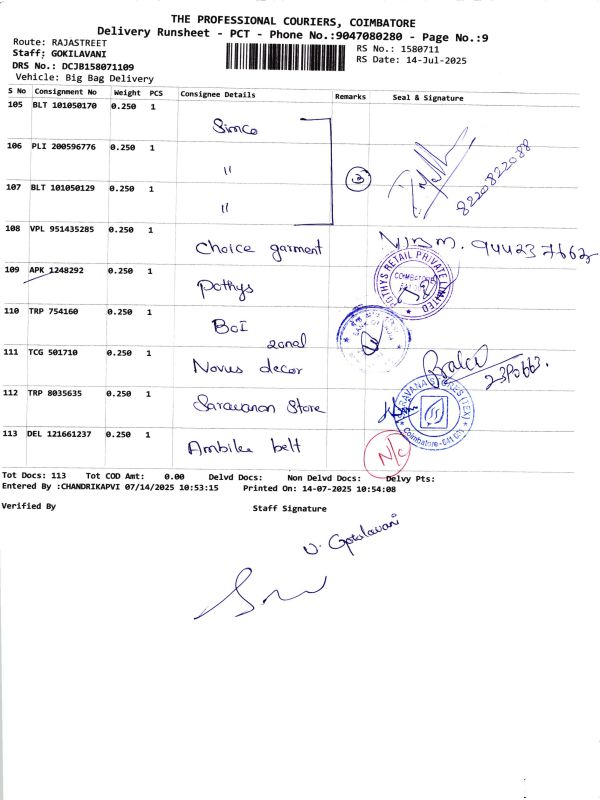 THE PROFESSIONAL COURIERS, COIMBATORE
Delivery Runsheet - PCT - Phone No.:9047080280 - Page No.:9
Route: RAJASTREET
RS No.: 1580711
Staff; GOKILAVANI
RS Date: 14-Jul-2025
DRS No.: DCJB158071109
Vehicle: Big Bag Delivery
S No Consignment No Weight PCS Consignee Details Remarks Seal & Signature
105 BLT 101050170 0.250 1 Simco
106 PLI 200596776 0.250 1 "
3
8220822088
107 BLT 101050129 0.250 1 "
108 VPL 951435285 0.250 1 Choice garment
109 APK 1248292 0.250 1 Pothys
POTHYS RETAIL PRIVATE LIMITED
COIMBATORE
110 TRP 754160 0.250 1 BOI zonal
111 TCG 501710 0.250 1 Novus decor
112 TRP 8035635 0.250 1 Saravanan Store
113 DEL 121661237 0.250 1 Ambika belt N/C
Tot Docs: 113 Tot COD Amt: 0.00 Delvd Docs: Non Delvd Docs: Delvy Pts:
Entered By :CHANDRIKAPVI 07/14/2025 10:53:15 Printed On: 14-07-2025 10:54:08
Verified By Staff Signature